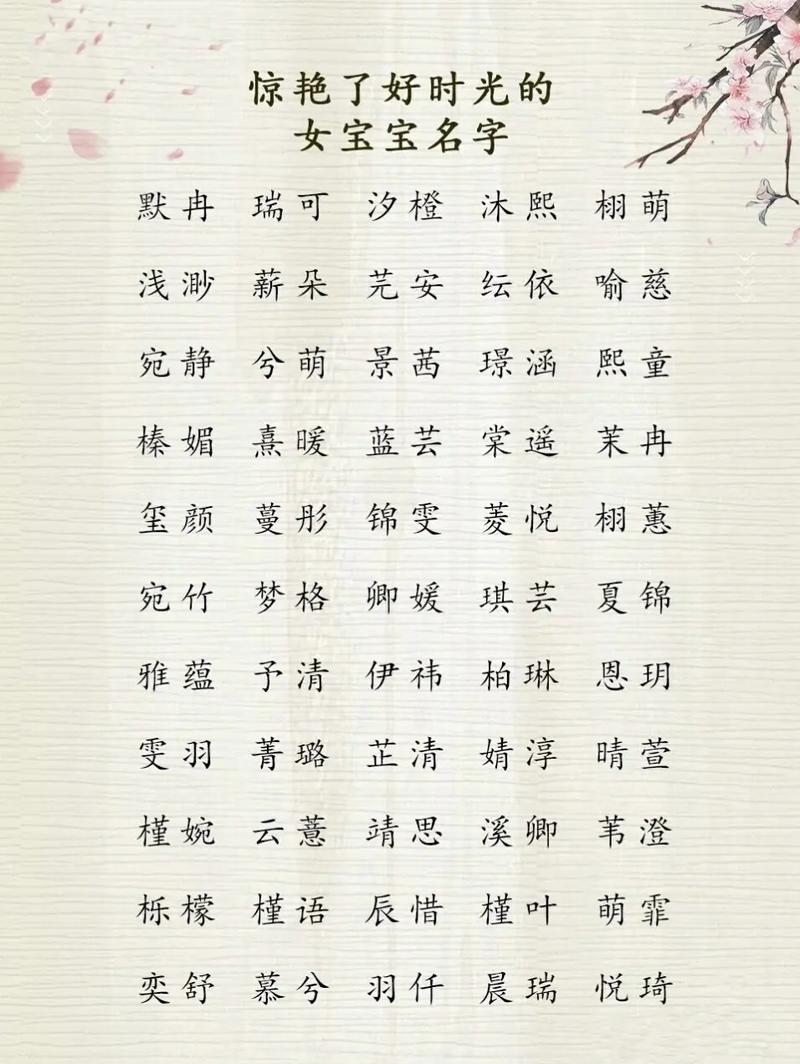 惊艳了好时光的
女宝宝名字
默冉 瑞可 汐橙 沐熙 栩萌
浅渺 薪朵 芫安 纭依 喻慈
宛静 兮萌 景茜 璟涵 熙童
榛媚 熹暖 蓝芸 棠遥 茉冉
玺颜 蔓彤 锦雯 菱悦 栩蕙
宛竹 梦格 卿媛 琪芸 夏锦
雅蕴 予清 伊祎 柏琳 恩玥
雯羽 菁璐 芷清 婧淳 晴萱
槿婉 云薏 靖思 溪卿 苇澄
栎檬 槿语 辰惜 槿叶 萌霏
奕舒 慕兮 羽仟 晨瑞 悦琦